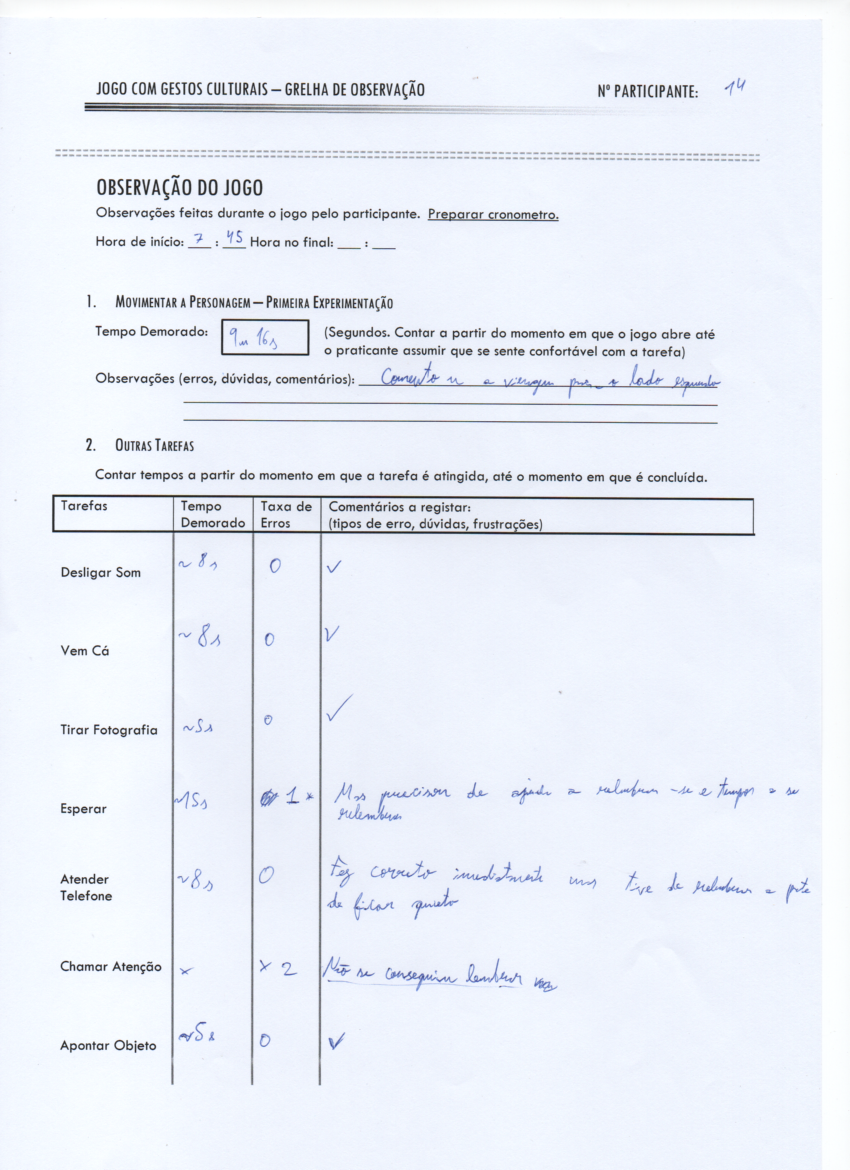 JOGO COM GESTOS CULTURAIS – GRELHA DE OBSERVAÇÃO Nº PARTICIPANTE: 14
OBSERVAÇÃO DO JOGO
Observações feitas durante o jogo pelo participante. Preparar cronometro.
Hora de início: 7 : 45 Hora no final: ___ : ___
1. MOVIMENTAR A PERSONAGEM – PRIMEIRA EXPERIMENTAÇÃO
Tempo Demorado: 9m 16s (Segundos. Contar a partir do momento em que o jogo abre até
o praticante assumir que se sente confortável com a tarefa)
Observações (erros, dúvidas, comentários): a viragem para o lado esquerdo
2. OUTRAS TAREFAS
Contar tempos a partir do momento em que a tarefa é atingida, até o momento em que é concluída.
Tarefas Tempo Taxa de Comentários a registar:
Demorado Erros (tipos de erro, dúvidas, frustrações)
Desligar Som ~8s 0 ✓
Vem Cá ~8s 0 ✓
Tirar Fotografia ~5s 0 ✓
Esperar ~15s 1 * Mas precisou de ajuda a relembrar-se e tempo a se
relembrar
Atender ~8s 0 Fez correto imediatamente mas tive de relembrar a parte
Telefone de ficar quieto
Chamar Atenção × × 2 Não se conseguiu lembrar
Apontar Objeto ~5s 0 ✓